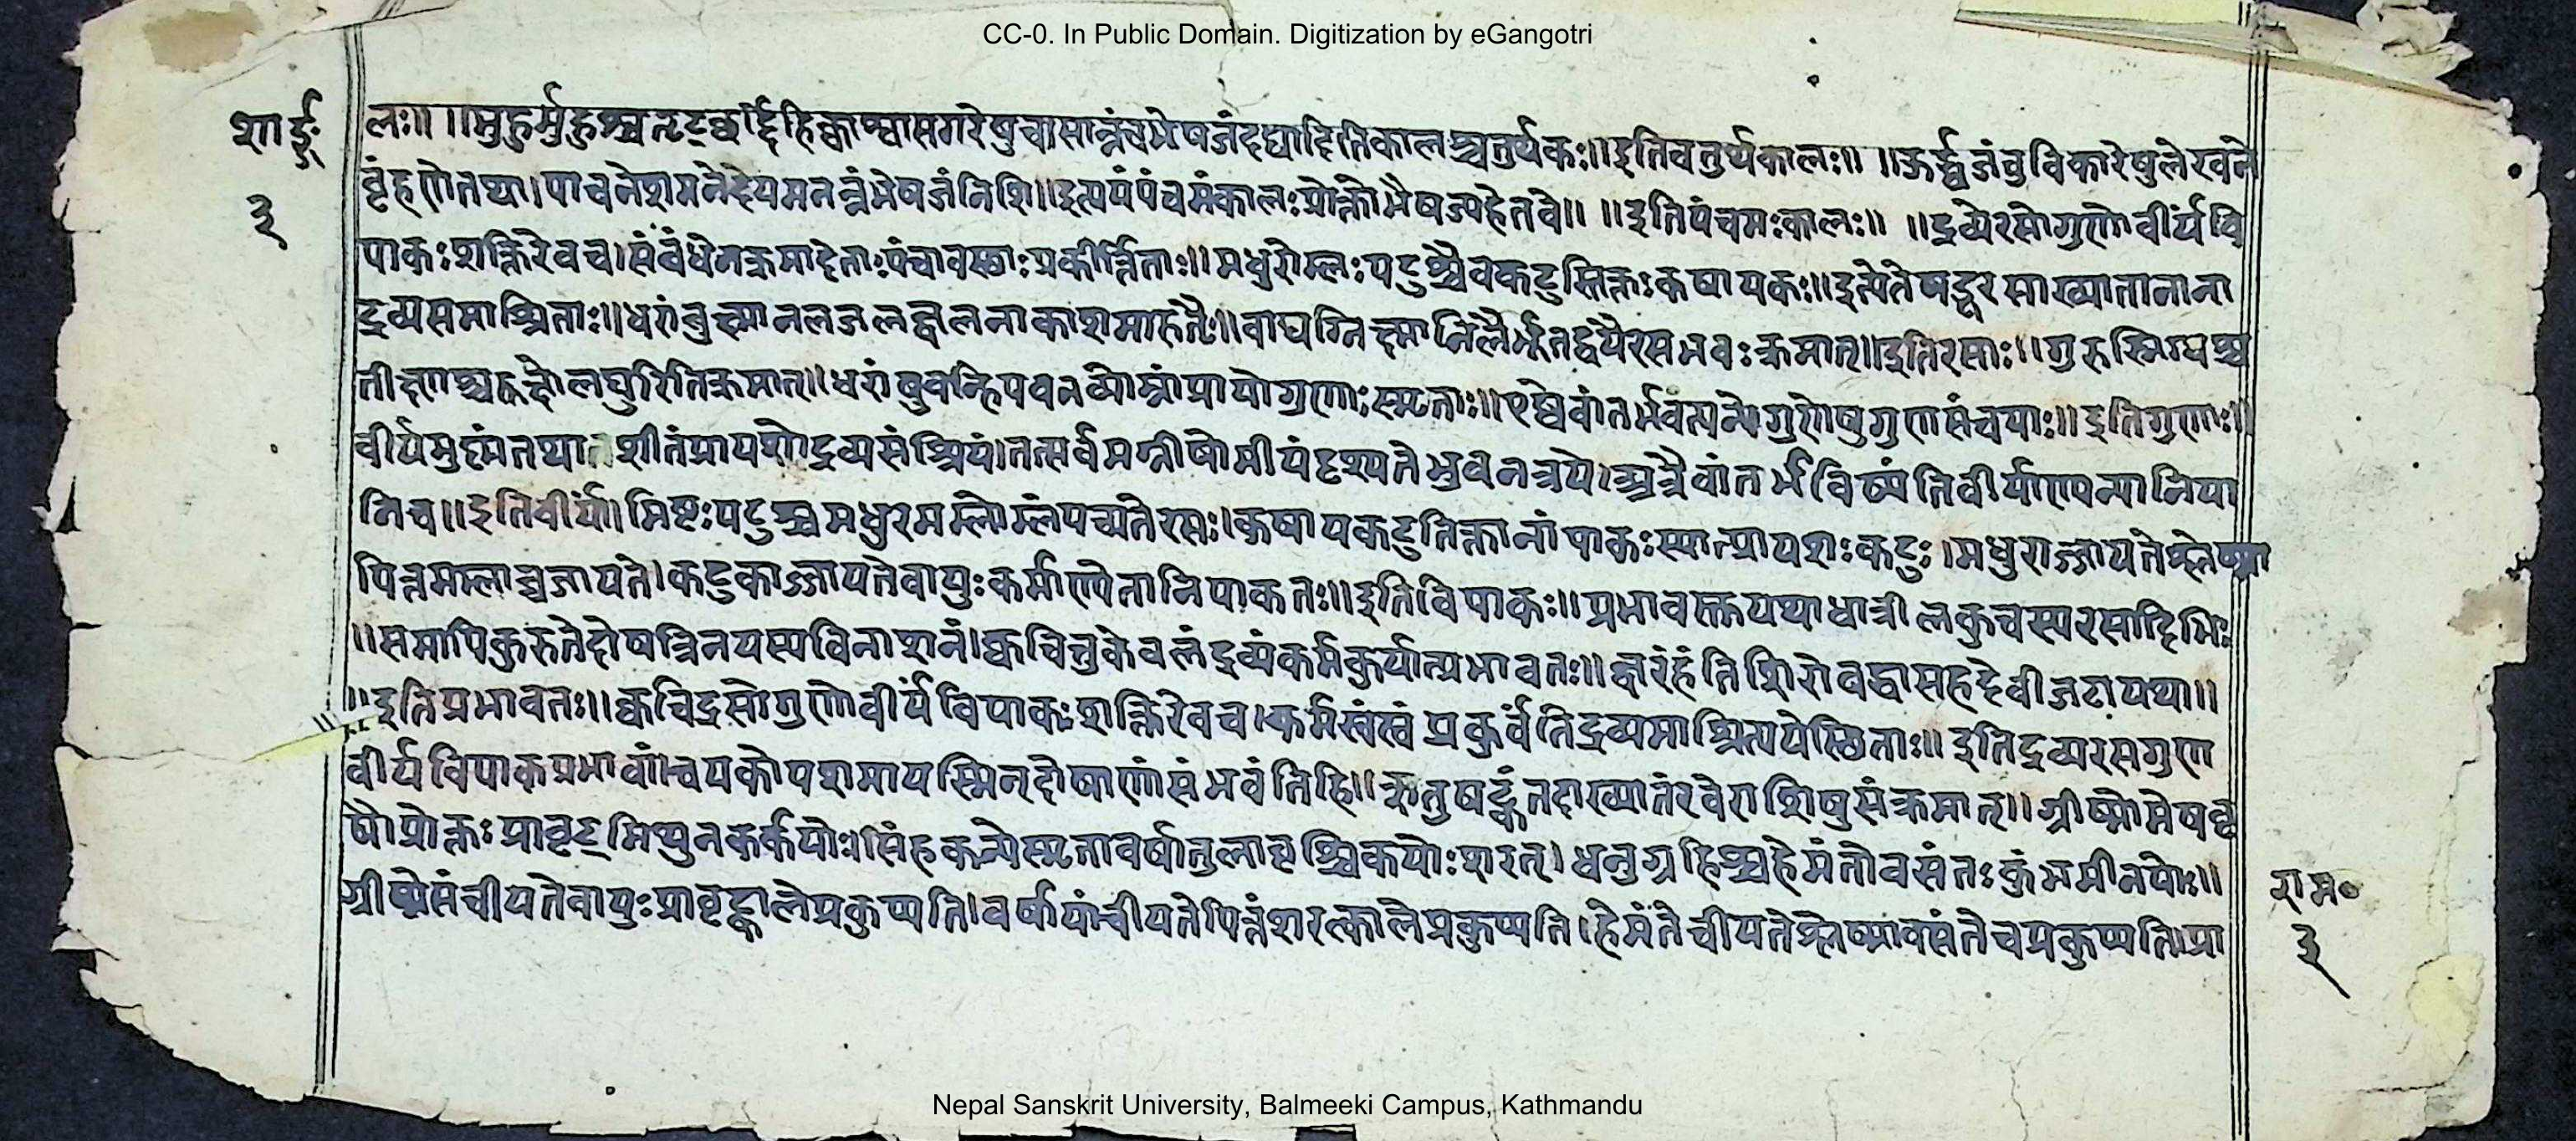 CC-0. In Public Domain. Digitization by eGangotri
शार्ङ्ग
३
लः॥ ॥मुहुर्मुहुश्च तृट्छर्द्दिहिक्काश्वासगरेषुच।सान्नंचभेषजंदद्यादितिकालश्चतुर्थकः॥इतिचतुर्थकालः॥ ॥ऊर्द्ध्वजंतुविकारेषुलेखने
बृंहणेतथा।पाचनेशमनेदेयमनन्नंभेषजंनिशि॥इत्ययंपंचमंकालःप्रोक्तोभैषज्यहेतवे॥ ॥इतिपंचमःकालः॥ ॥द्रव्येरसोगुणोवीर्यंवि
पाकःशक्तिरेवच।संबंधेनक्रमादेताःपंचावस्थाःप्रकीर्त्तिताः॥मधुरोम्लःपटुश्चैवकटुस्तिक्तःकषायकः॥इत्येतेषड्रसाख्यातानाना
द्रव्यसमाश्रिताः॥धरांबुक्ष्मानलजलज्वलनाकाशमारुतैः॥वाय्वग्निक्ष्मानिलैर्भूतद्वयैरसभवःक्रमात्॥इतिरसाः॥गुरुस्निग्धश्च
तीक्ष्णश्चरूक्षोलघुरितिक्रमात्॥धरांबुवन्हिपवनव्योम्नांप्रायोगुणाःस्मृताः॥एष्वेवांतर्भवंत्यन्येगुणेषुगुणसंचयाः॥इतिगुणाः॥
वीर्यमुष्णंतथाशीतंप्रायशोद्रव्यसंश्रियं।तत्सर्वमग्नीषोमीयंदृश्यतेभुवनत्रये।अत्रैवांतर्भविष्यंतिवीर्याण्यन्यानिया
निच॥इतिवीर्यं।मिष्टःपटुश्चमधुरमम्लोम्लंपच्यतेरसः।कषायकटुतिक्तानांपाकःस्यात्प्रायशःकटुः।मधुराज्जायतेश्लेष्मा
पित्तमम्लाच्चजायते।कटुकाज्जायतेवायुःकर्माण्येतानिपाकतः॥इतिविपाकः॥प्रभावस्तुयथाधात्रीलकुचस्यरसादिभिः
॥समापिकुरुतेदोषत्रितयस्यविनाशनं।क्वचित्तुकेवलंद्रव्यंकर्मकुर्यात्प्रभावतः॥ज्वरंहंतिशिरोबद्धासहदेवीजटायथा॥
॥इतिप्रभावतः॥क्वचिद्रसोगुणोवीर्यंविपाकःशक्तिरेवच।कर्मस्वंस्वंप्रकुर्वंतिद्रव्यमाश्रित्ययेस्थिताः॥इतिद्रव्यरसगुण
वीर्यविपाकप्रभावां।चयकोपशमायस्मिन्दोषाणांसंभवंतिहि॥ऋतुषट्कंतदाख्यातंरवेराशिषुसंक्रमात्॥ग्रीष्मोमेषवृ
षौप्रोक्तःप्रावृट्मिथुनकर्कयोः।सिंहकन्येस्मृतावर्षातुलावृश्चिकयोःशरत्।धनुग्रहिश्चहेमंतोवसंतःकुंभमीनयोः॥
ग्रीष्मेसंचीयतेवायुःप्रावृट्कालेप्रकुप्यति।वर्षायांचीयतेपित्तंशरत्कालेप्रकुप्यति।हेमंतेचीयतेश्लेष्मावसंतेचप्रकुप्यति।प्रा
राम०
३
Nepal Sanskrit University, Balmeeki Campus, Kathmandu